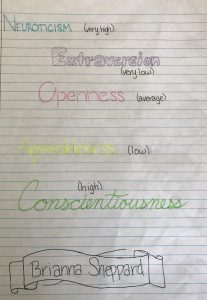 Neuroticism (very high)
Extraversion
(very low)
Openness (average)
Agreeableness (low)
(high)
Conscientiousness
Brianna Sheppard